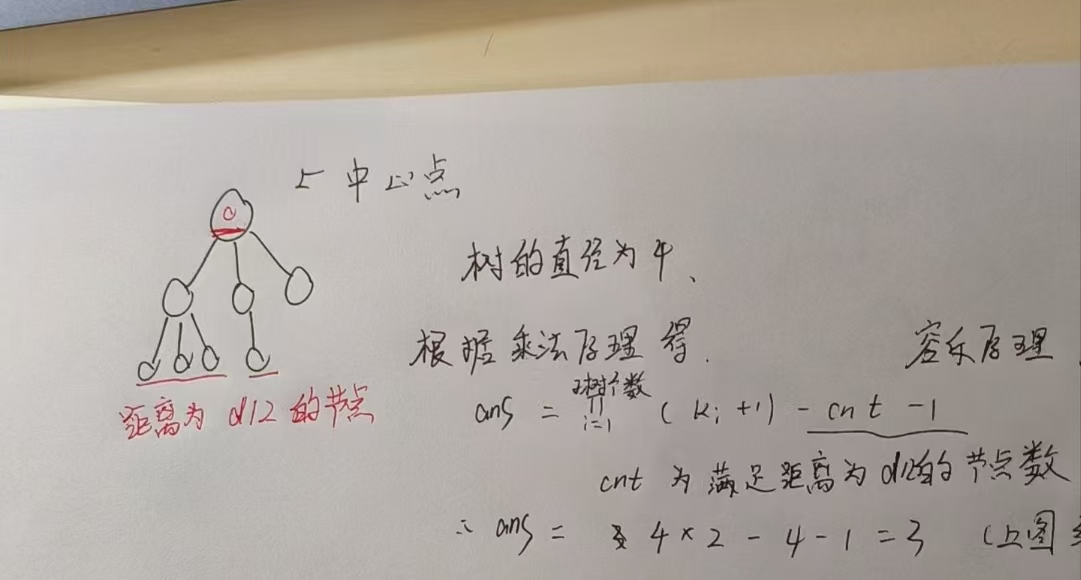 ← 中心点
树的直径为4、
根据乘法原理得.
容斥原理
距离为 d/2 的节点
ans = ∏_{i=1}^{子树个数} (k_i + 1) - cnt - 1
cnt 为满足距离为d/2的节点数
∴ ans = 4 × 2 - 4 - 1 = 3 (上图